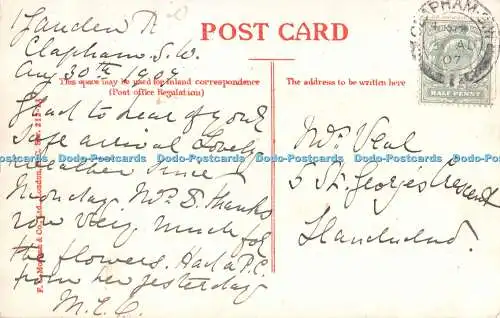 POST CARD
Landen Rd
Clapham. S.W.
Aug 30th 1907
This space may be used for inland correspondence
(Post office Regulation)
The address to be written here
Glad to hear of your
safe arrival. Lovely
weather since
Monday. Mrs S. thanks
you very much for
the flowers. Had a P.C.
from her yesterday
M.E.C.
Mrs Veal
5 St. Georges Crescent
Llandudno.
CLAPHAM
AU
07
HALF PENNY
London, E.C.
Dodo-Postcards Dodo-Postcards Dodo-Postcards Dodo-Postcards Dodo-Postcards